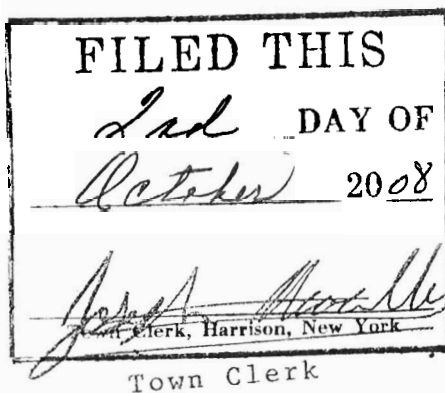 FILED THIS
2nd DAY OF
October 2008
Town Clerk, Harrison, New York
Town Clerk